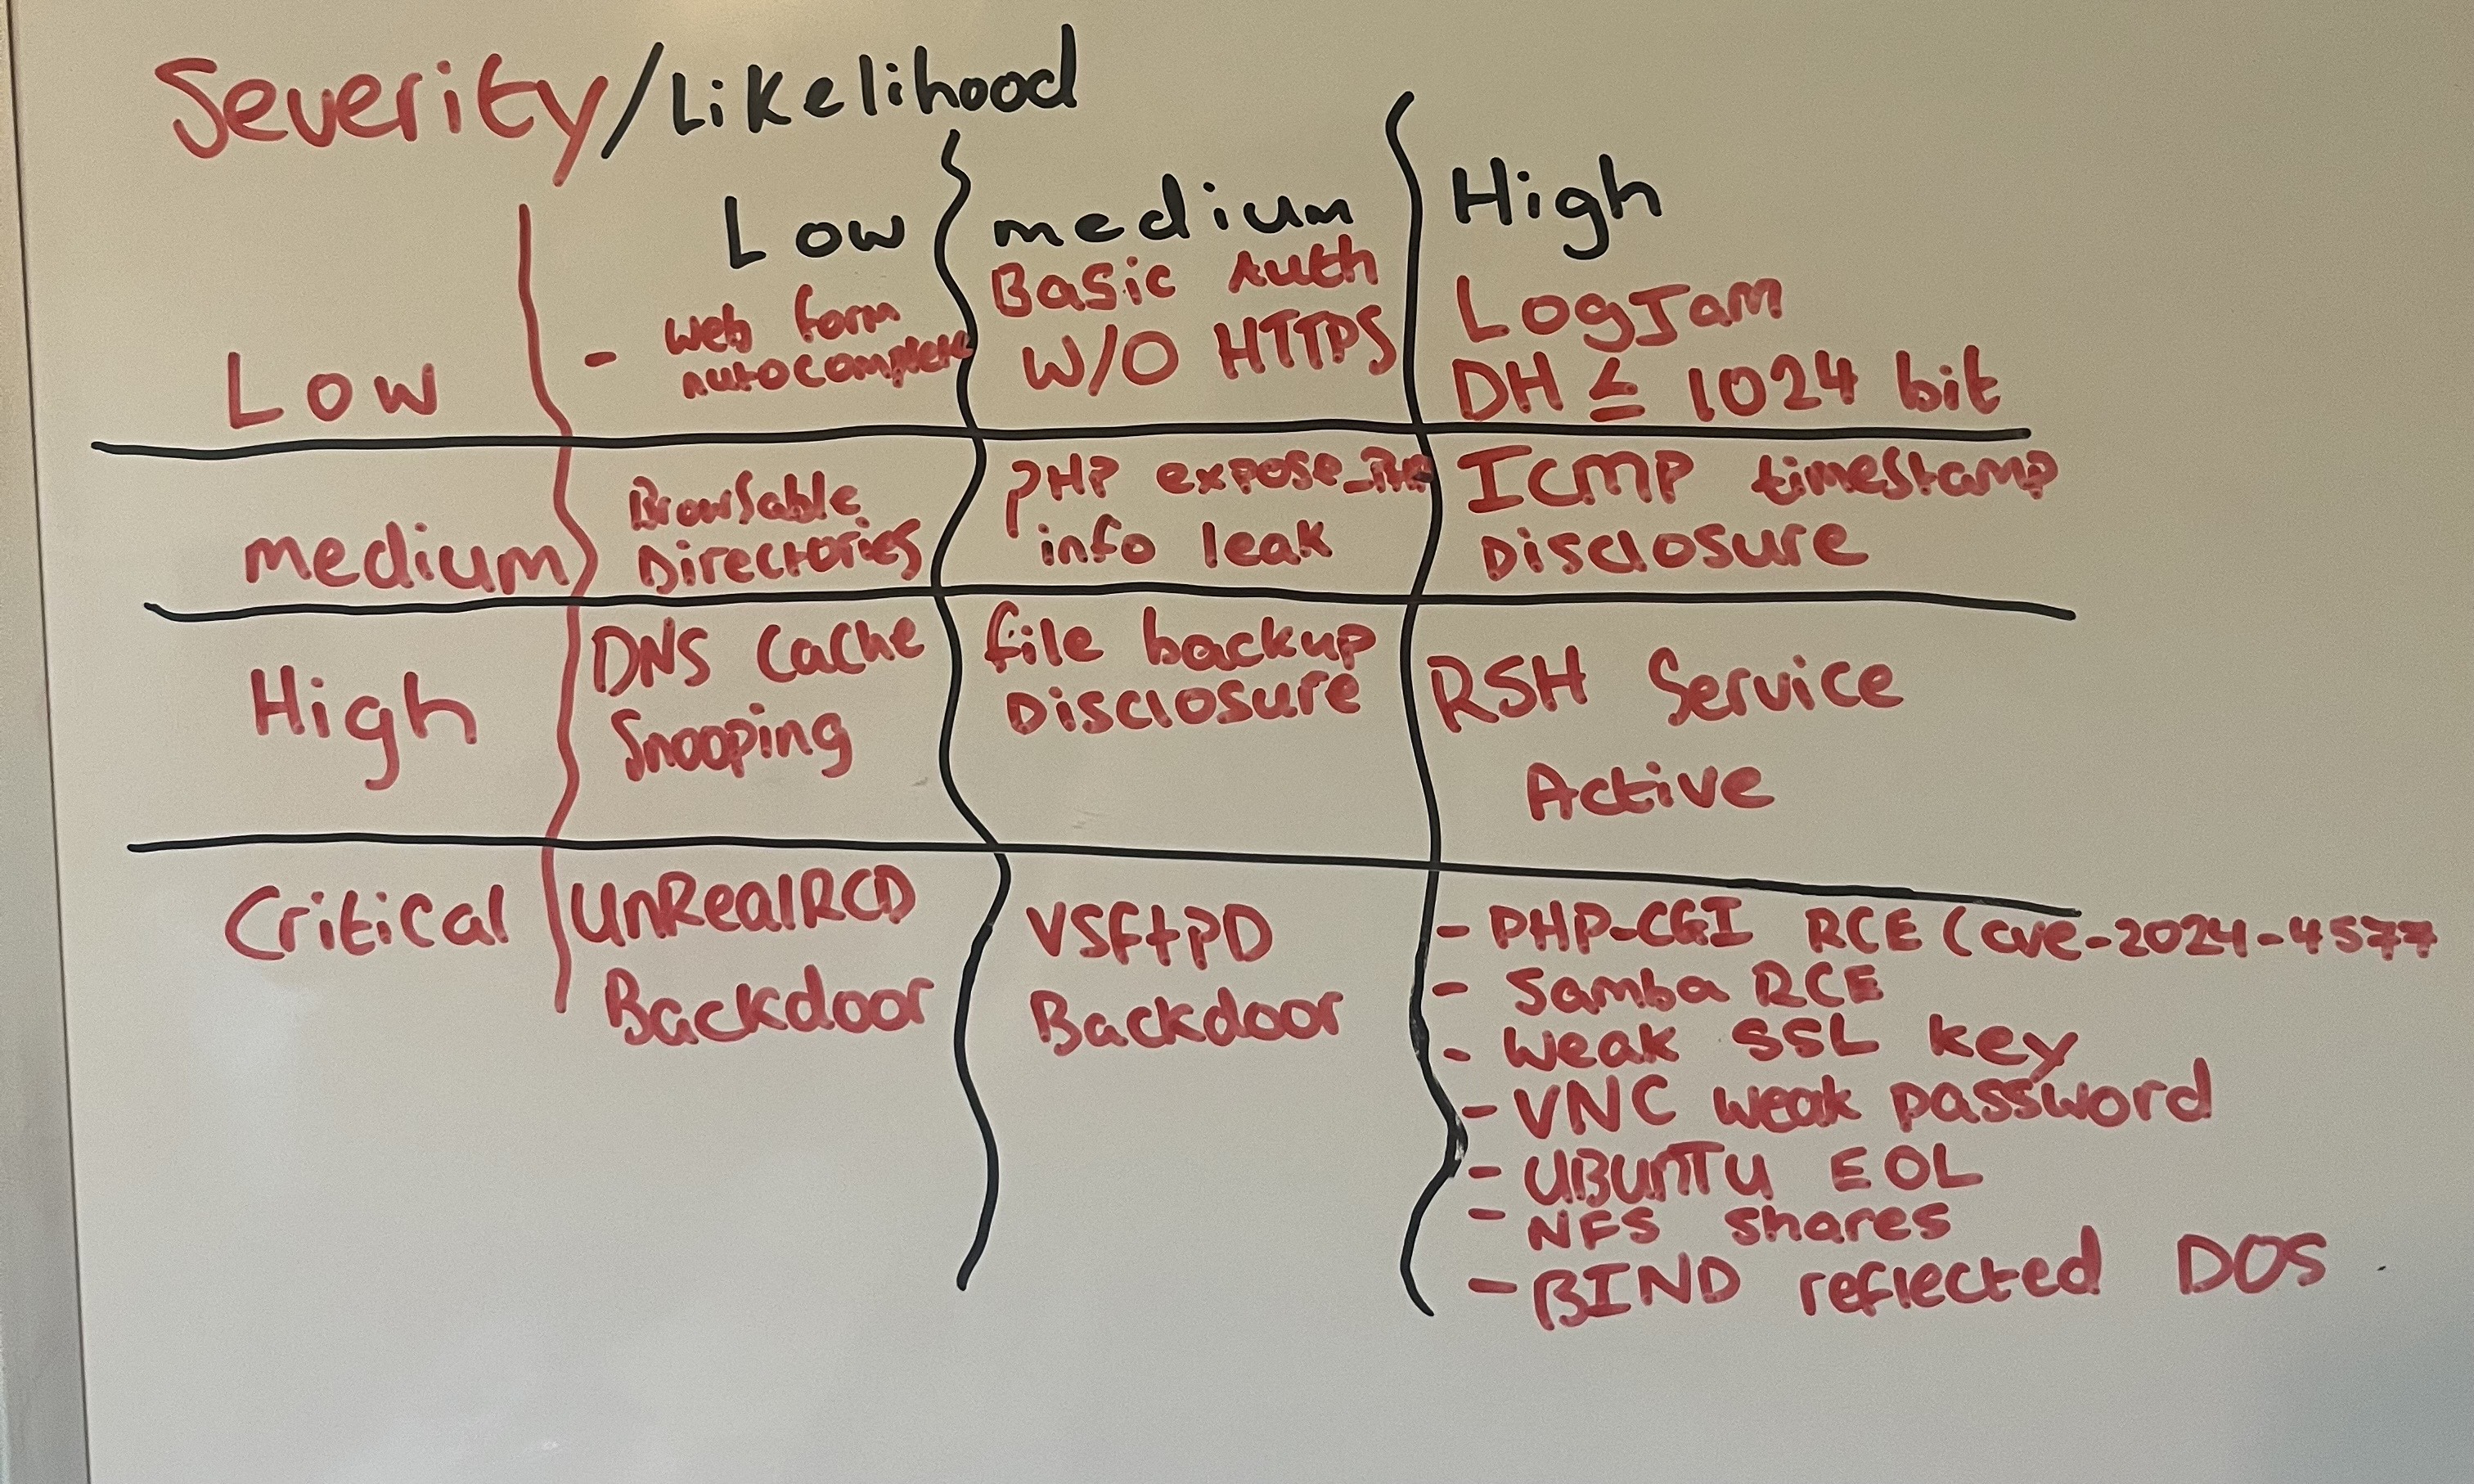 Severity/Likelihood
Low
medium
High
Low
- Web form
Autocomplete
Basic Auth
W/O HTTPS
LogJam
DH ≤ 1024 bit
medium
Browsable
Directories
PHP
info leak
ICMP timestamp
Disclosure
High
DNS Cache
Snooping
file backup
Disclosure
RSH Service
Active
Critical
UnRealRCD
Backdoor
VSftPD
Backdoor
- PHP-CGI RCE (CVE-2024-4577
- Samba RCE
- Weak SSL key
- VNC weak password
- UBUNTU EOL
- NFS shares
- BIND reflected DOS